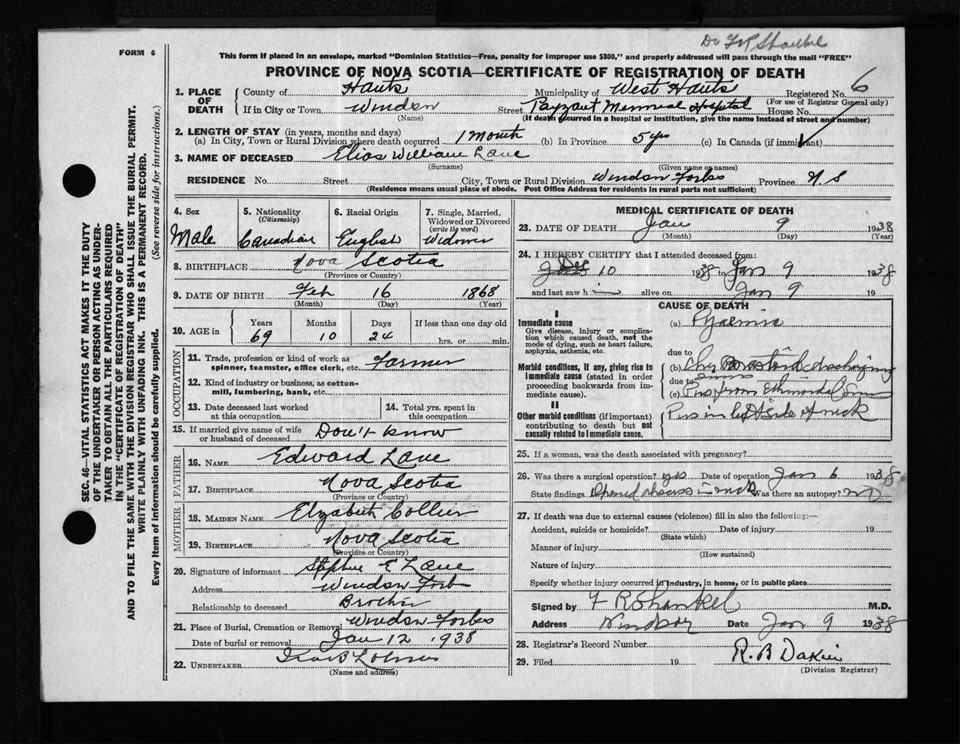 Dr F R Shankel
FORM 6
This form if placed in an envelope, marked "Dominion Statistics—Free, penalty for improper use $300," and properly addressed will pass through the mail "FREE"
PROVINCE OF NOVA SCOTIA—CERTIFICATE OF REGISTRATION OF DEATH
1. PLACE OF DEATH County of Hants Municipality of West Hants Registered No. 6
(For use of Registrar General only)
If in City or Town Windsor Street Payzant Memorial Hospital House No.
(Name) (If death occurred in a hospital or institution, give the name instead of street and number)
2. LENGTH OF STAY (in years, months and days)
(a) In City, Town or Rural Division where death occurred 1 Month (b) In Province 5 yrs (c) In Canada (if immigrant)
3. NAME OF DECEASED Elias William Lane
(Surname) (Given name or names)
RESIDENCE No. Street City, Town or Rural Division Windsor Forks Province N.S
(Residence means usual place of abode. Post Office Address for residents in rural parts not sufficient)
4. Sex Male
5. Nationality (Citizenship) Canadian
6. Racial Origin English
7. Single, Married, Widowed or Divorced (write the word) Widower
8. BIRTHPLACE Nova Scotia
(Province or Country)
9. DATE OF BIRTH Feb 16 1868
(Month) (Day) (Year)
10. AGE in Years Months Days If less than one day old
69 10 24 hrs. or min.
OCCUPATION
11. Trade, profession or kind of work as spinner, teamster, office clerk, etc. Farmer
12. Kind of industry or business, as cotton-mill, lumbering, bank, etc.
13. Date deceased last worked at this occupation
14. Total yrs. spent in this occupation
15. If married give name of wife or husband of deceased Don't know
FATHER
16. NAME Edward Lane
17. BIRTHPLACE Nova Scotia
(Province or Country)
MOTHER
18. MAIDEN NAME Elizabeth Collier
19. BIRTHPLACE Nova Scotia
(Province or Country)
20. Signature of informant E Lane
Address Windsor Forks
Relationship to deceased Brother
21. Place of Burial, Cremation or Removal Windsor Forks
Date of burial or removal Jan 12 1938
22. UNDERTAKER
(Name and address)
MEDICAL CERTIFICATE OF DEATH
23. DATE OF DEATH Jan 9 1938
(Month) (Day) (Year)
24. I HEREBY CERTIFY that I attended deceased from:
Dec 10 1938 to Jan 9 1938
and last saw h i alive on Jan 9 19
CAUSE OF DEATH
I
Immediate cause
Give disease, injury or complication which caused death, not the mode of dying, such as heart failure, asphyxia, asthenia, etc.
(a) Pyaemia
Morbid conditions, if any, giving rise to immediate cause (stated in order proceeding backwards from immediate cause).
due to
(b)
due to
(c) Pus from
II
Other morbid conditions (if important) contributing to death but not causally related to immediate cause.
Pus in left side of neck
25. If a woman, was the death associated with pregnancy?
26. Was there a surgical operation? yes Date of operation Jan 6 1938
State findings Opened abscess in neck Was there an autopsy? no
27. If death was due to external causes (violence) fill in also the following:—
Accident, suicide or homicide? Date of injury 19
(State which)
Manner of injury
(How sustained)
Nature of injury
Specify whether injury occurred in industry, in home, or in public place
Signed by F R Shankel M.D.
Address Windsor Date Jan 9 1938
28. Registrar's Record Number
29. Filed 19 R. B Dakin
(Division Registrar)
SEC. 46—VITAL STATISTICS ACT MAKES IT THE DUTY
OF THE UNDERTAKER OR PERSON ACTING AS UNDER-
TAKER TO OBTAIN ALL THE PARTICULARS REQUIRED
IN THE "CERTIFICATE OF REGISTRATION OF DEATH"
AND TO FILE THE SAME WITH THE DIVISION REGISTRAR WHO SHALL ISSUE THE BURIAL PERMIT.
WRITE PLAINLY WITH UNFADING INK. THIS IS A PERMANENT RECORD.
Every item of information should be carefully supplied. (See reverse side for instructions.)